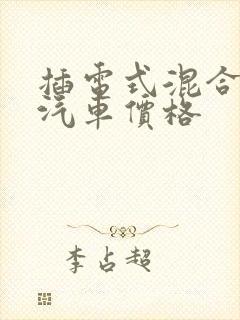 插電式混合
汽車價格
李占超